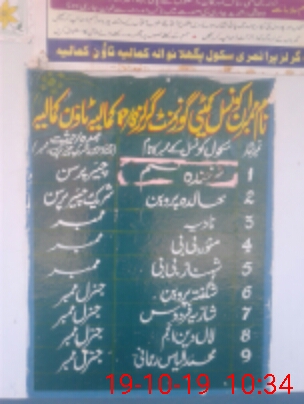 گرلز پرائمری سکول بگھلا نوالہ کمالیہ ٹاؤن کمالیہ
نام ممبران کونسل کمیٹی گورنمنٹ گرلز کمالیہ ٹاؤن کمالیہ
نمبر شمار سکول کونسل کے ممبر کا نام
1 چیئر پرسن
2 خالدہ پروین شریک چیئر پرسن
3 نادیہ ممبر
4 منور بی بی ممبر
5 شہناز بی بی ممبر
6 شگفتہ پروین جنرل ممبر
7 شازیہ فردوس جنرل ممبر
8 لال دین انجم جنرل ممبر
9 محمد الیاس رحمانی جنرل ممبر
19-10-19 10:34